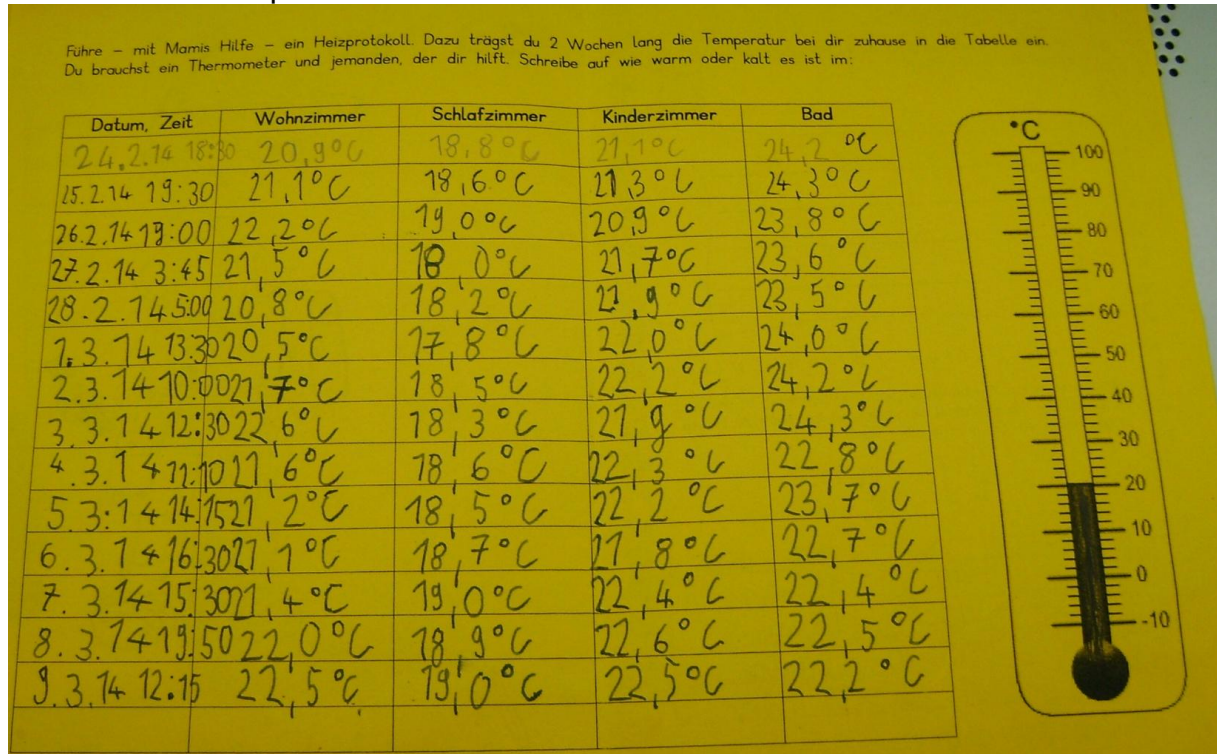 Führe – mit Mamis Hilfe – ein Heizprotokoll. Dazu trägst du 2 Wochen lang die Temperatur bei dir zuhause in die Tabelle ein.
Du brauchst ein Thermometer und jemanden, der dir hilft. Schreibe auf wie warm oder kalt es ist im:
Datum, Zeit Wohnzimmer Schlafzimmer Kinderzimmer Bad
24.2.14 18:30 20,9°C 18,8°C 21,1°C 24,2°C
25.2.14 19:30 21,1°C 18,6°C 21,3°C 24,3°C
26.2.14 19:00 22,2°C 19,0°C 20,9°C 23,8°C
27.2.14 3:45 21,5°C 18,0°C 21,7°C 23,6°C
28.2.14 5:00 20,8°C 18,2°C 21,9°C 23,5°C
1.3.14 13:30 20,5°C 17,8°C 22,0°C 24,0°C
2.3.14 10:00 21,7°C 18,5°C 22,2°C 24,2°C
3.3.14 12:30 22,6°C 18,3°C 21,9°C 24,3°C
4.3.14 11:10 21,6°C 18,6°C 22,3°C 22,8°C
5.3.14 14:15 21,2°C 18,5°C 22,2°C 23,7°C
6.3.14 16:30 21,1°C 18,7°C 21,8°C 22,7°C
7.3.14 15:30 21,4°C 19,0°C 22,4°C 22,4°C
8.3.14 19:50 22,0°C 18,9°C 22,6°C 22,5°C
9.3.14 12:15 22,5°C 19,0°C 22,5°C 22,2°C
°C
100
90
80
70
60
50
40
30
20
10
0
-10